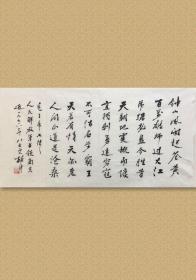 钟山风雨起苍黄
百万雄师过大江
虎踞龙盘今胜昔
天翻地覆慨而慷
宜将剩勇追穷寇
不可沽名学霸王
天若有情天亦老
人间正道是沧桑
人民解放军占领南京